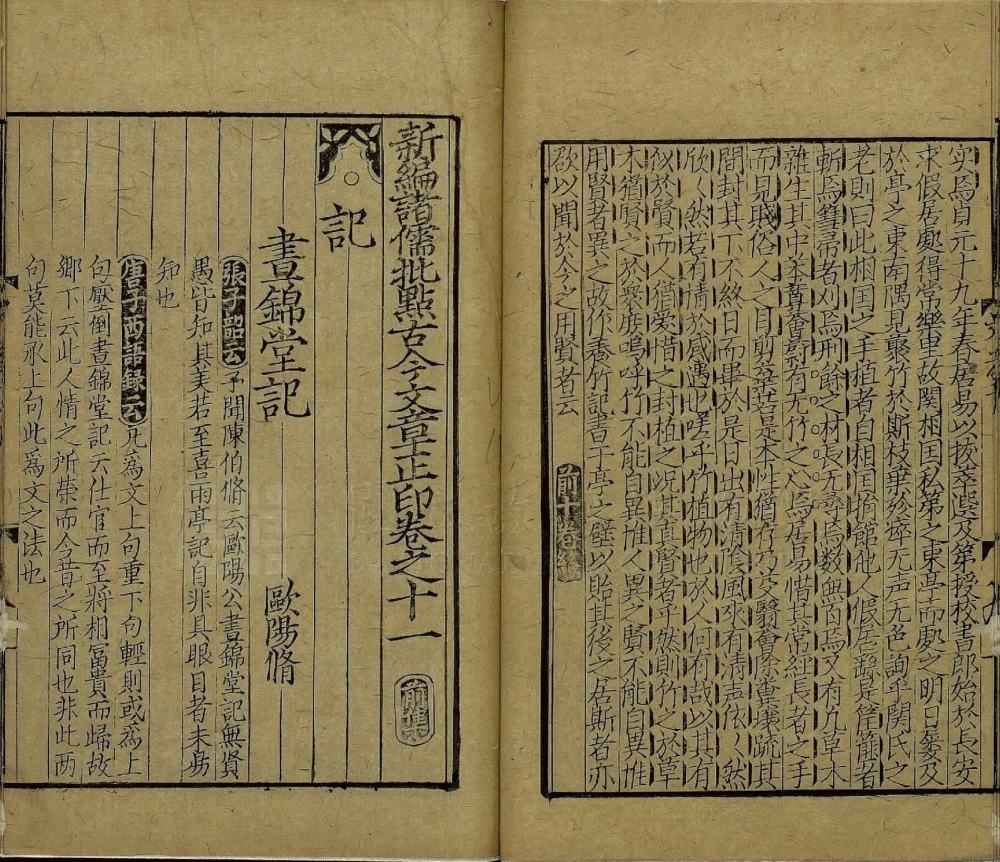 实焉貞元十九年春居易以拔萃選及第授校書郎始於長安
求假居處得常樂里故関相囯私第之東亭而處之明日屨及
於亭之東南隅見藂竹於斯枝葉殄瘁无声无色詢乎関氏之
老則曰此相囯之手植者自相囯捐館他人假居繇是筐篚者
斬焉篲箒者刈焉刑餘之材長无尋焉数無百焉又有凢草木
雜生其中菶茸薈蔚有无竹之心焉居易惜其常經長者之手
而見賎俗人之目剪棄若是本性猶竹乃芟翳薈除糞壤䟽其
間封其下不終日而畢於是日出有清陰風來有清声依〻然
欣〻然若有情於感遇也嗟乎竹植物也於人何有哉以其有
似於賢而人猶愛惜之封植之况其真賢者乎然則竹之於草
木猶賢之於衆庶嗚呼竹不能自異惟人異之賢不能自異惟
用賢者異之故作養竹記書于亭之壁以貽其後之居斯者亦
欲以聞於今之用賢者云
前十卷終
新編諸儒批點古今文章正印卷之十一 前集
記
晝錦堂記 歐陽脩
張子韶云予聞陳伯脩云歐陽公晝錦堂記無賢
愚皆知其美若至喜雨亭記自非具眼目者未易
知也
唐子西語録云凡為文上句重下句輕則或為上
句壓倒晝錦堂記云仕宦而至將相冨貴而歸故
郷下云此人情之所榮而今昔之所同也非此两
句莫能承上句此為文之法也